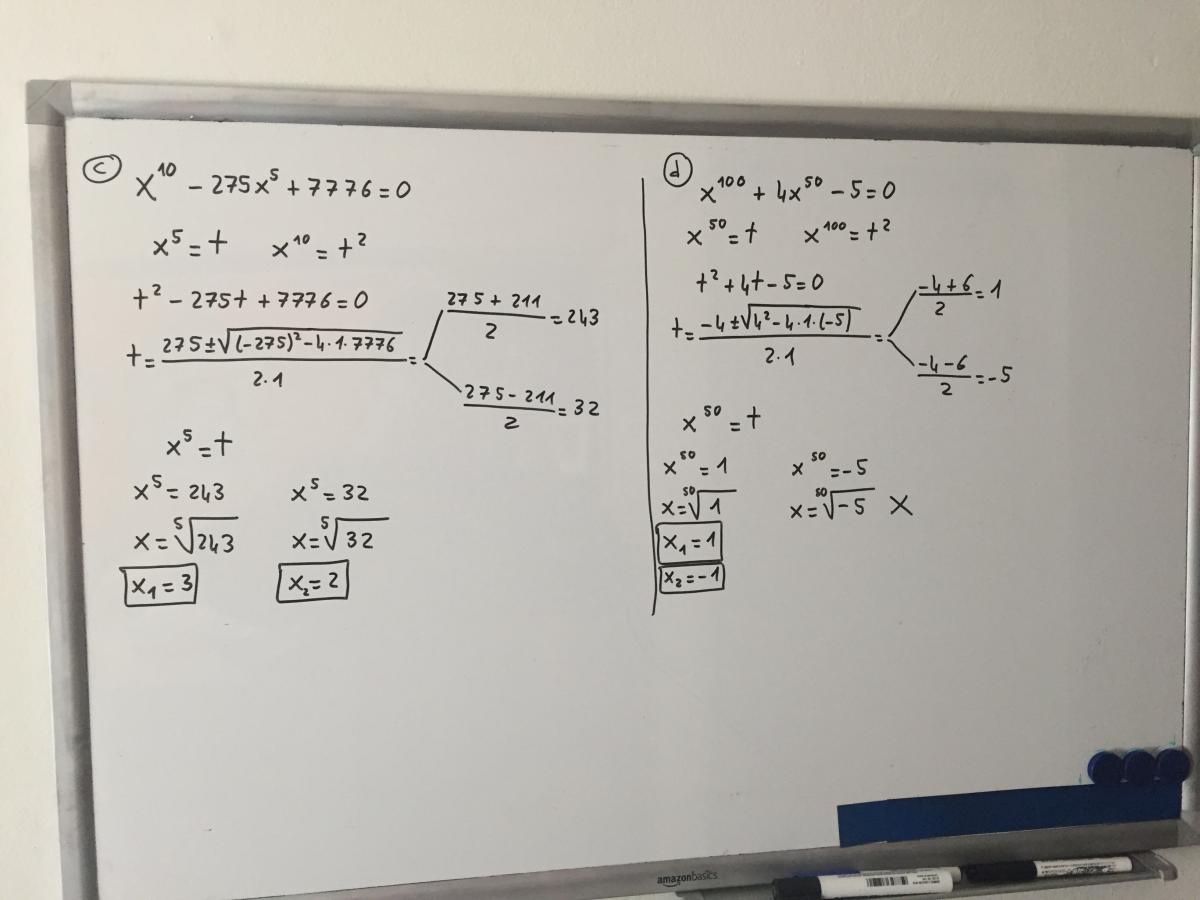 c
x¹⁰ - 275x⁵ + 7776 = 0
x⁵ = t x¹⁰ = t²
t² - 275t + 7776 = 0
t = (275 ± √((-275)² - 4·1·7776)) / (2·1) =
(275 + 211) / 2 = 243
(275 - 211) / 2 = 32
x⁵ = t
x⁵ = 243 x⁵ = 32
x = ⁵√243 x = ⁵√32
x₁ = 3 x₂ = 2
d
x¹⁰⁰ + 4x⁵⁰ - 5 = 0
x⁵⁰ = t x¹⁰⁰ = t²
t² + 4t - 5 = 0
t = (-4 ± √(4² - 4·1·(-5))) / (2·1) =
(-4 + 6) / 2 = 1
(-4 - 6) / 2 = -5
x⁵⁰ = t
x⁵⁰ = 1 x⁵⁰ = -5
x = ⁵⁰√1 x = ⁵⁰√-5 X
x₁ = 1
x₂ = -1
amazonbasics